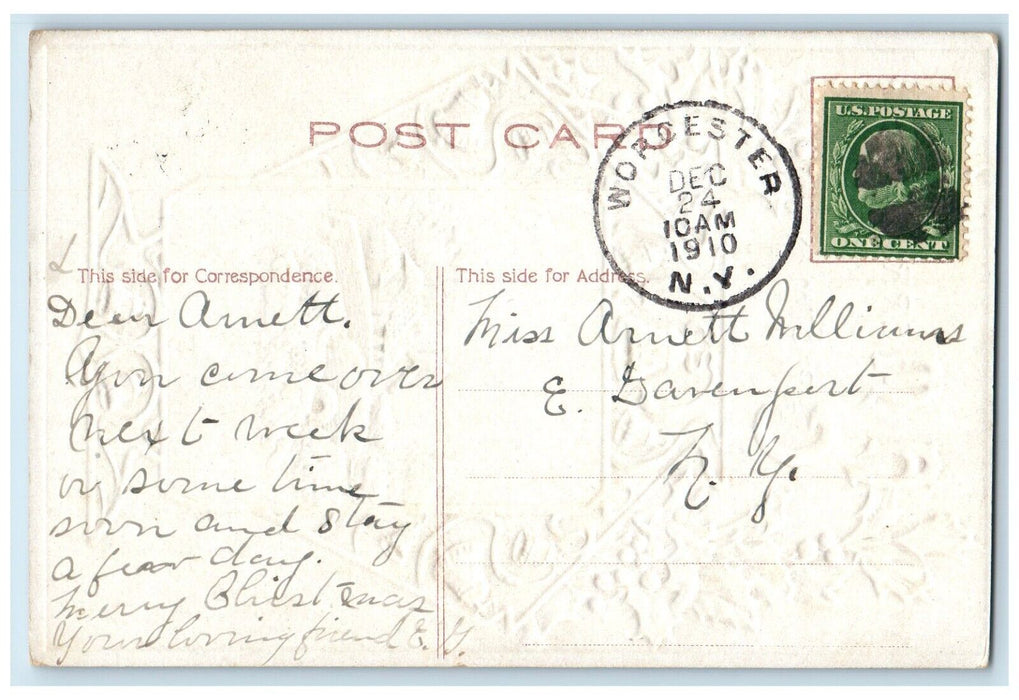 POST CARD
WORCESTER
DEC
24
10AM
1910
N.Y.
U.S. POSTAGE
ONE CENT
This side for Correspondence.
Dear Arnett.
you come over
next week
or some time
soon and stay
a few day.
Merry Christmas
Your loving friend E. G.
This side for Address.
Miss Arnett Williams
E. Davenport
N. Y.